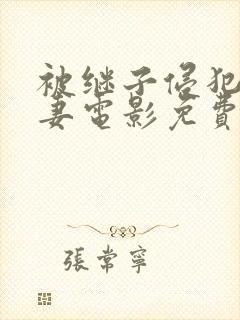 被继子侵犯
妻電影免費
張常寧